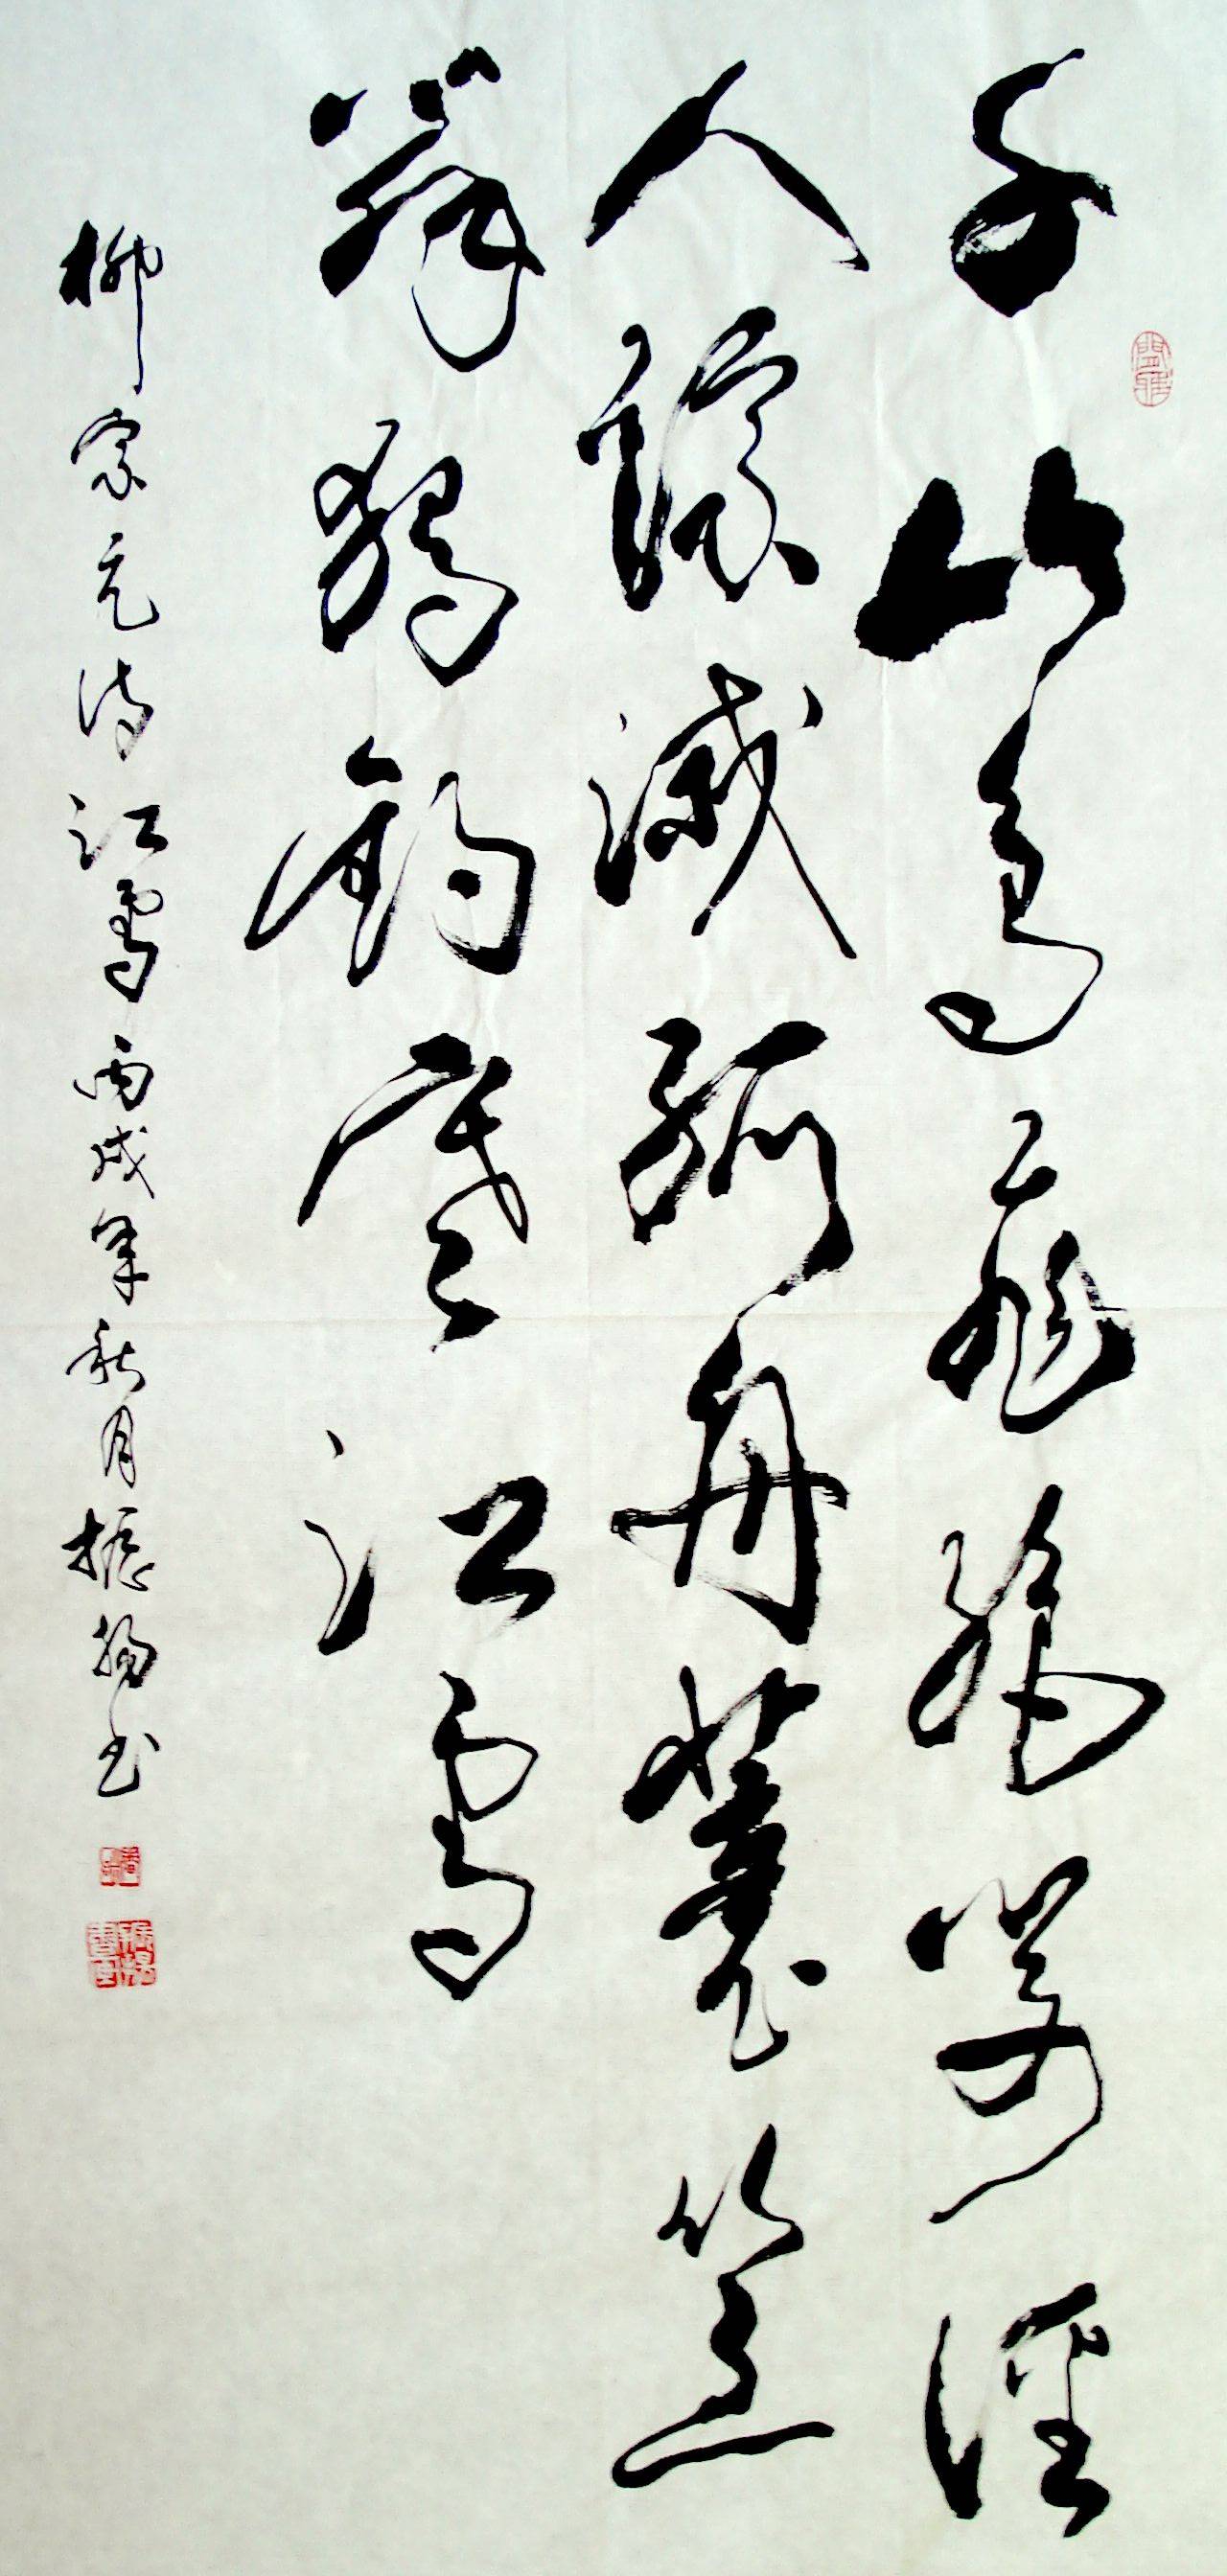 千山鳥飛絕萬徑
人蹤滅孤舟蓑笠
翁獨釣寒江雪
柳宗元詩江雪丙戌年秋月振揚书